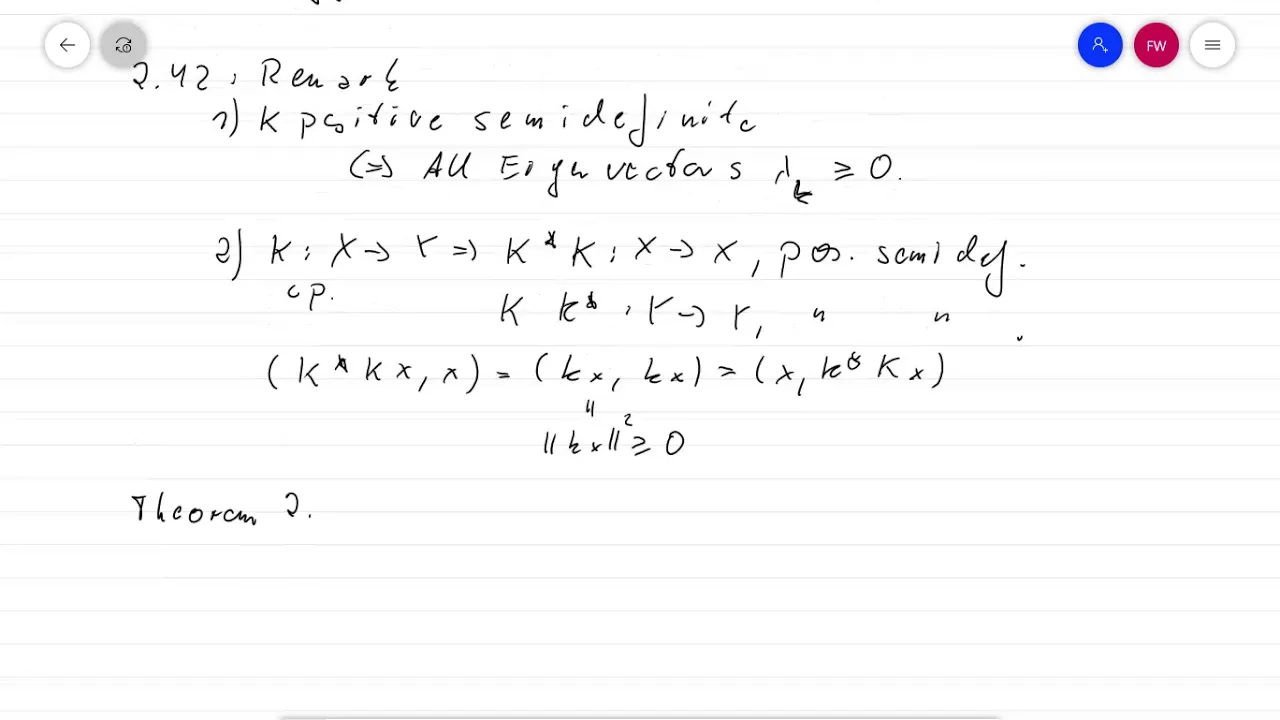 FW
2.42, Remark
1) K positive semidefinite
(=> All Eigenvectors λ_k ≥ 0.
2) K: X → Y => K*K: X → X, pos. semidef.
cp.
K K*: Y → Y, " "
(K*Kx, x) = (Kx, Kx) = (x, K*Kx)
"
||Kx||² ≥ 0
Theorem 2.